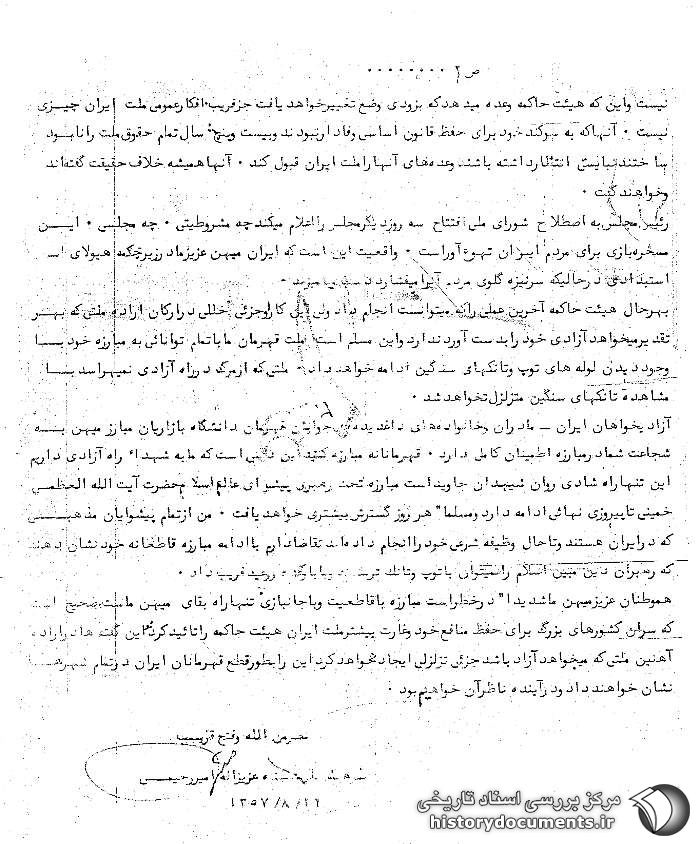 ص ۲ ۰۰۰۰۰۰۰۰
نیست واین که هیئت حاکمه وعده میدهدکه بزودی وضع تغییرخواهد یافت جزفریب افکارعمومی ملت ایران چیزی
نیست ۰ آنهاکه به سوگند خود برای حفظ قانون اساسی وفادارنبودند وبیست وپنج سال تمام حقوق ملت رانابود
ساختندنبایستی انتظارداشته باشند وعده‌های آنهاراملت ایران قبول کند ۰ آنهاهمیشه خلاف حقیقت گفته‌اند
وخواهندگفت ۰
رئیس مجلس به اصطلاح شورای ملی افتتاح سه روزدیگرمجلس رااعلام میکندچه مشروطیتی ۰ چه مجلسی ۰ این
مسخره‌بازی برای مردم ایران تهوع‌آوراست ۰ واقعیت این است که ایران میهن عزیزمادرزیرچکمه هیولای
استبدادی درحالیکه سرنیزه گلوی مردم آنرامیفشارددست وپامیزند ۰
بهرحال هیئت حاکمه آخرین عملی راکه میتوانست انجام داد ولی این کارجزئی خللی درارکان اراده ملتی که بهر
تقدیرمیخواهدآزادی خودرابدست آوردندارد واین مسلم است ملت قهرمان ماباتمام توانائی به مبارزه خود با
وجود دیدن لوله های توپ وتانکهای سنگین ادامه خواهدداد ۰ ملتی که ازمرگ درراه آزادی نمیهراسد با
مشاهده تانکهای سنگین متزلزل نخواهدشد ۰
آزادیخواهان ایران – مادران وخانواده‌های داغدیده جوانان قهرمان دانشگاه بازاریان مبارز میهن به
شجاعت شمادرمبارزه اطمینان کامل دارد ۰ قهرمانانه مبارزه کنید این است که مابه شهداء راه آزادی داریم
این تنهاراه شادی روان شهیدان جاویداست مبارزه تحت رهبری پیشوای عالم اسلام حضرت آیت الله العظمی
خمینی تاپیروزی نهائی ادامه دارد ومسلما" هر روز گسترش بیشتری خواهدیافت ۰ من ازتمام پیشوایان مذهبی
که درایران هستند وتاحال وظیفه شرعی خودراانجام داده‌اند تقاضادارم باادامه مبارزه قاطعانه خودنشان دهند
که رهبران دین مبین اسلام رانمیتوان باتوپ وتانک فریب داد ۰
هموطنان عزیزمیهن ماشدیدا" درخطراست مبارزه باقاطعیت وباجانبازی تنهاراه بقای میهن ماست صحیح است
که سران کشورهای بزرگ برای حفظ منافع خود وغارت بیشترملت ایران هیئت حاکمه راتائیدکردند این گفته هادراراده
آهنین ملتی که میخواهدآزاد باشد جزئی تزلزلی ایجادنخواهدکرد این رابطورقطع قهرمانان ایران درتمام شهرها
نشان خواهندداد ودرآینده ناظرآن خواهیم بود ۰
نصرمن الله وفتح قریب
عزیزاله امیررحیمی
۱۳۵۷/۸/
مرکز بررسی اسناد تاریخی
historydocuments.ir